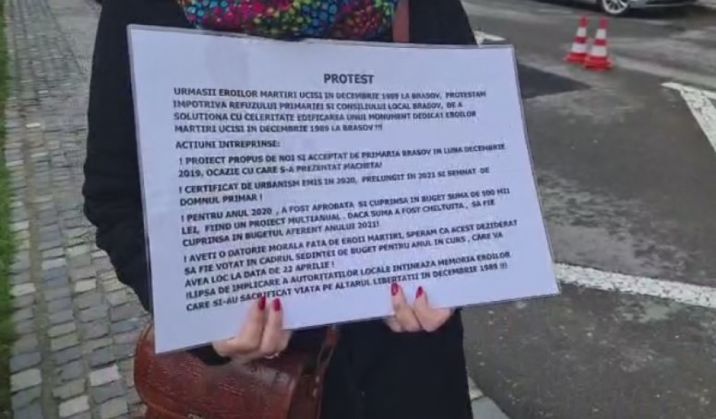 PROTEST
URMASII EROILOR MARTIRI UCISI IN DECEMBRIE 1989 LA BRASOV, PROTESTAM
IMPOTRIVA REFUZULUI PRIMARIEI SI CONSILIULUI LOCAL BRASOV, DE A
SOLUTIONA CU CELERITATE EDIFICAREA UNUI MONUMENT DEDICAT EROILOR
MARTIRI UCISI IN DECEMBRIE 1989 LA BRASOV !!!
ACTIUNI INTREPRINSE:
! PROIECT PROPUS DE NOI SI ACCEPTAT DE PRIMARIA BRASOV IN LUNA DECEMBRIE
2019, OCAZIE CU CARE S-A PREZENTAT MACHETA!
! CERTIFICAT DE URBANISM EMIS IN 2020, PRELUNGIT IN 2021 SI SEMNAT DE
DOMNUL PRIMAR !
! PENTRU ANUL 2020 , A FOST APROBATA SI CUPRINSA IN BUGET SUMA DE 500 MII
LEI, FIIND UN PROIECT MULTIANUAL . DACA SUMA A FOST CHELTUITA , SA FIE
CUPRINSA IN BUGETUL AFERENT ANULUI 2021!
! AVETI O DATORIE MORALA FATA DE EROII MARTIRI, SPERAM CA ACEST DEZIDERAT
SA FIE VOTAT IN CADRUL SEDINTEI DE BUGET PENTRU ANUL IN CURS , CARE VA
AVEA LOC LA DATA DE 22 APRILIE !
!LIPSA DE IMPLICARE A AUTORITATILOR LOCALE INTINEAZA MEMORIA EROILOR
CARE SI-AU SACRIFICAT VIATA PE ALTARUL LIBERTATII IN DECEMBRIE 1989 !!!